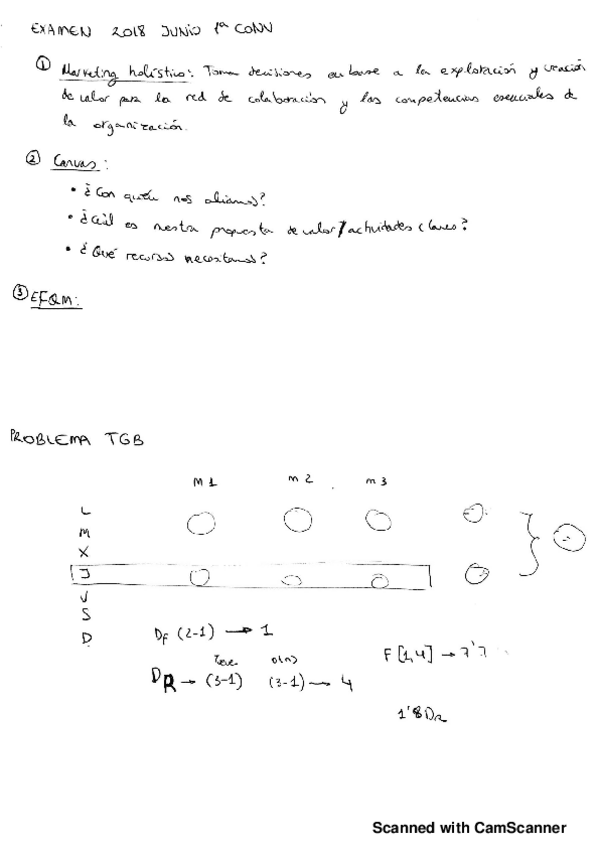 EXAMEN 2018 JUNIO 1ª CONV
① Marketing holístico: Tomar decisiones en base a la explotación y creación
de valor para la red de colaboración y las competencias esenciales de
la organización.
② Canvas:
• ¿Con quién nos aliamos?
• ¿Cuál es nuestra propuesta de valor/actividades claves?
• ¿Qué recursos necesitamos?
③ EFQM:
PROBLEMA TGB
M1 m2 m3
L
M
X
J
V
S
D
DF (2-1) → 1
F [1,4] → 7'7
DR → (3-1) (3-1) → 4
1'8 DR
Scanned with CamScanner